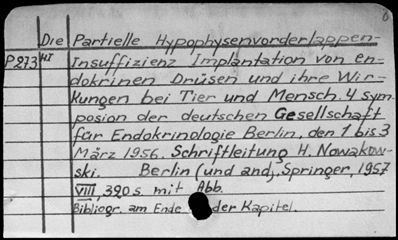 Die Partielle Hypophysenvorderlappen-
P273 HI Insuffizienz Implantation von en-
dokrinen Drüsen und ihre Wir-
kungen bei Tier und Mensch. 4 sym-
posion der deutschen Gesellschaft
für Endokrinologie Berlin, den 1 bis 3
März 1956. Schriftleitung H. Nowakow-
ski. Berlin (und and). Springer, 1957
VIII, 320 s. mit Abb.
Bibliogr. am Ende der Kapitel.